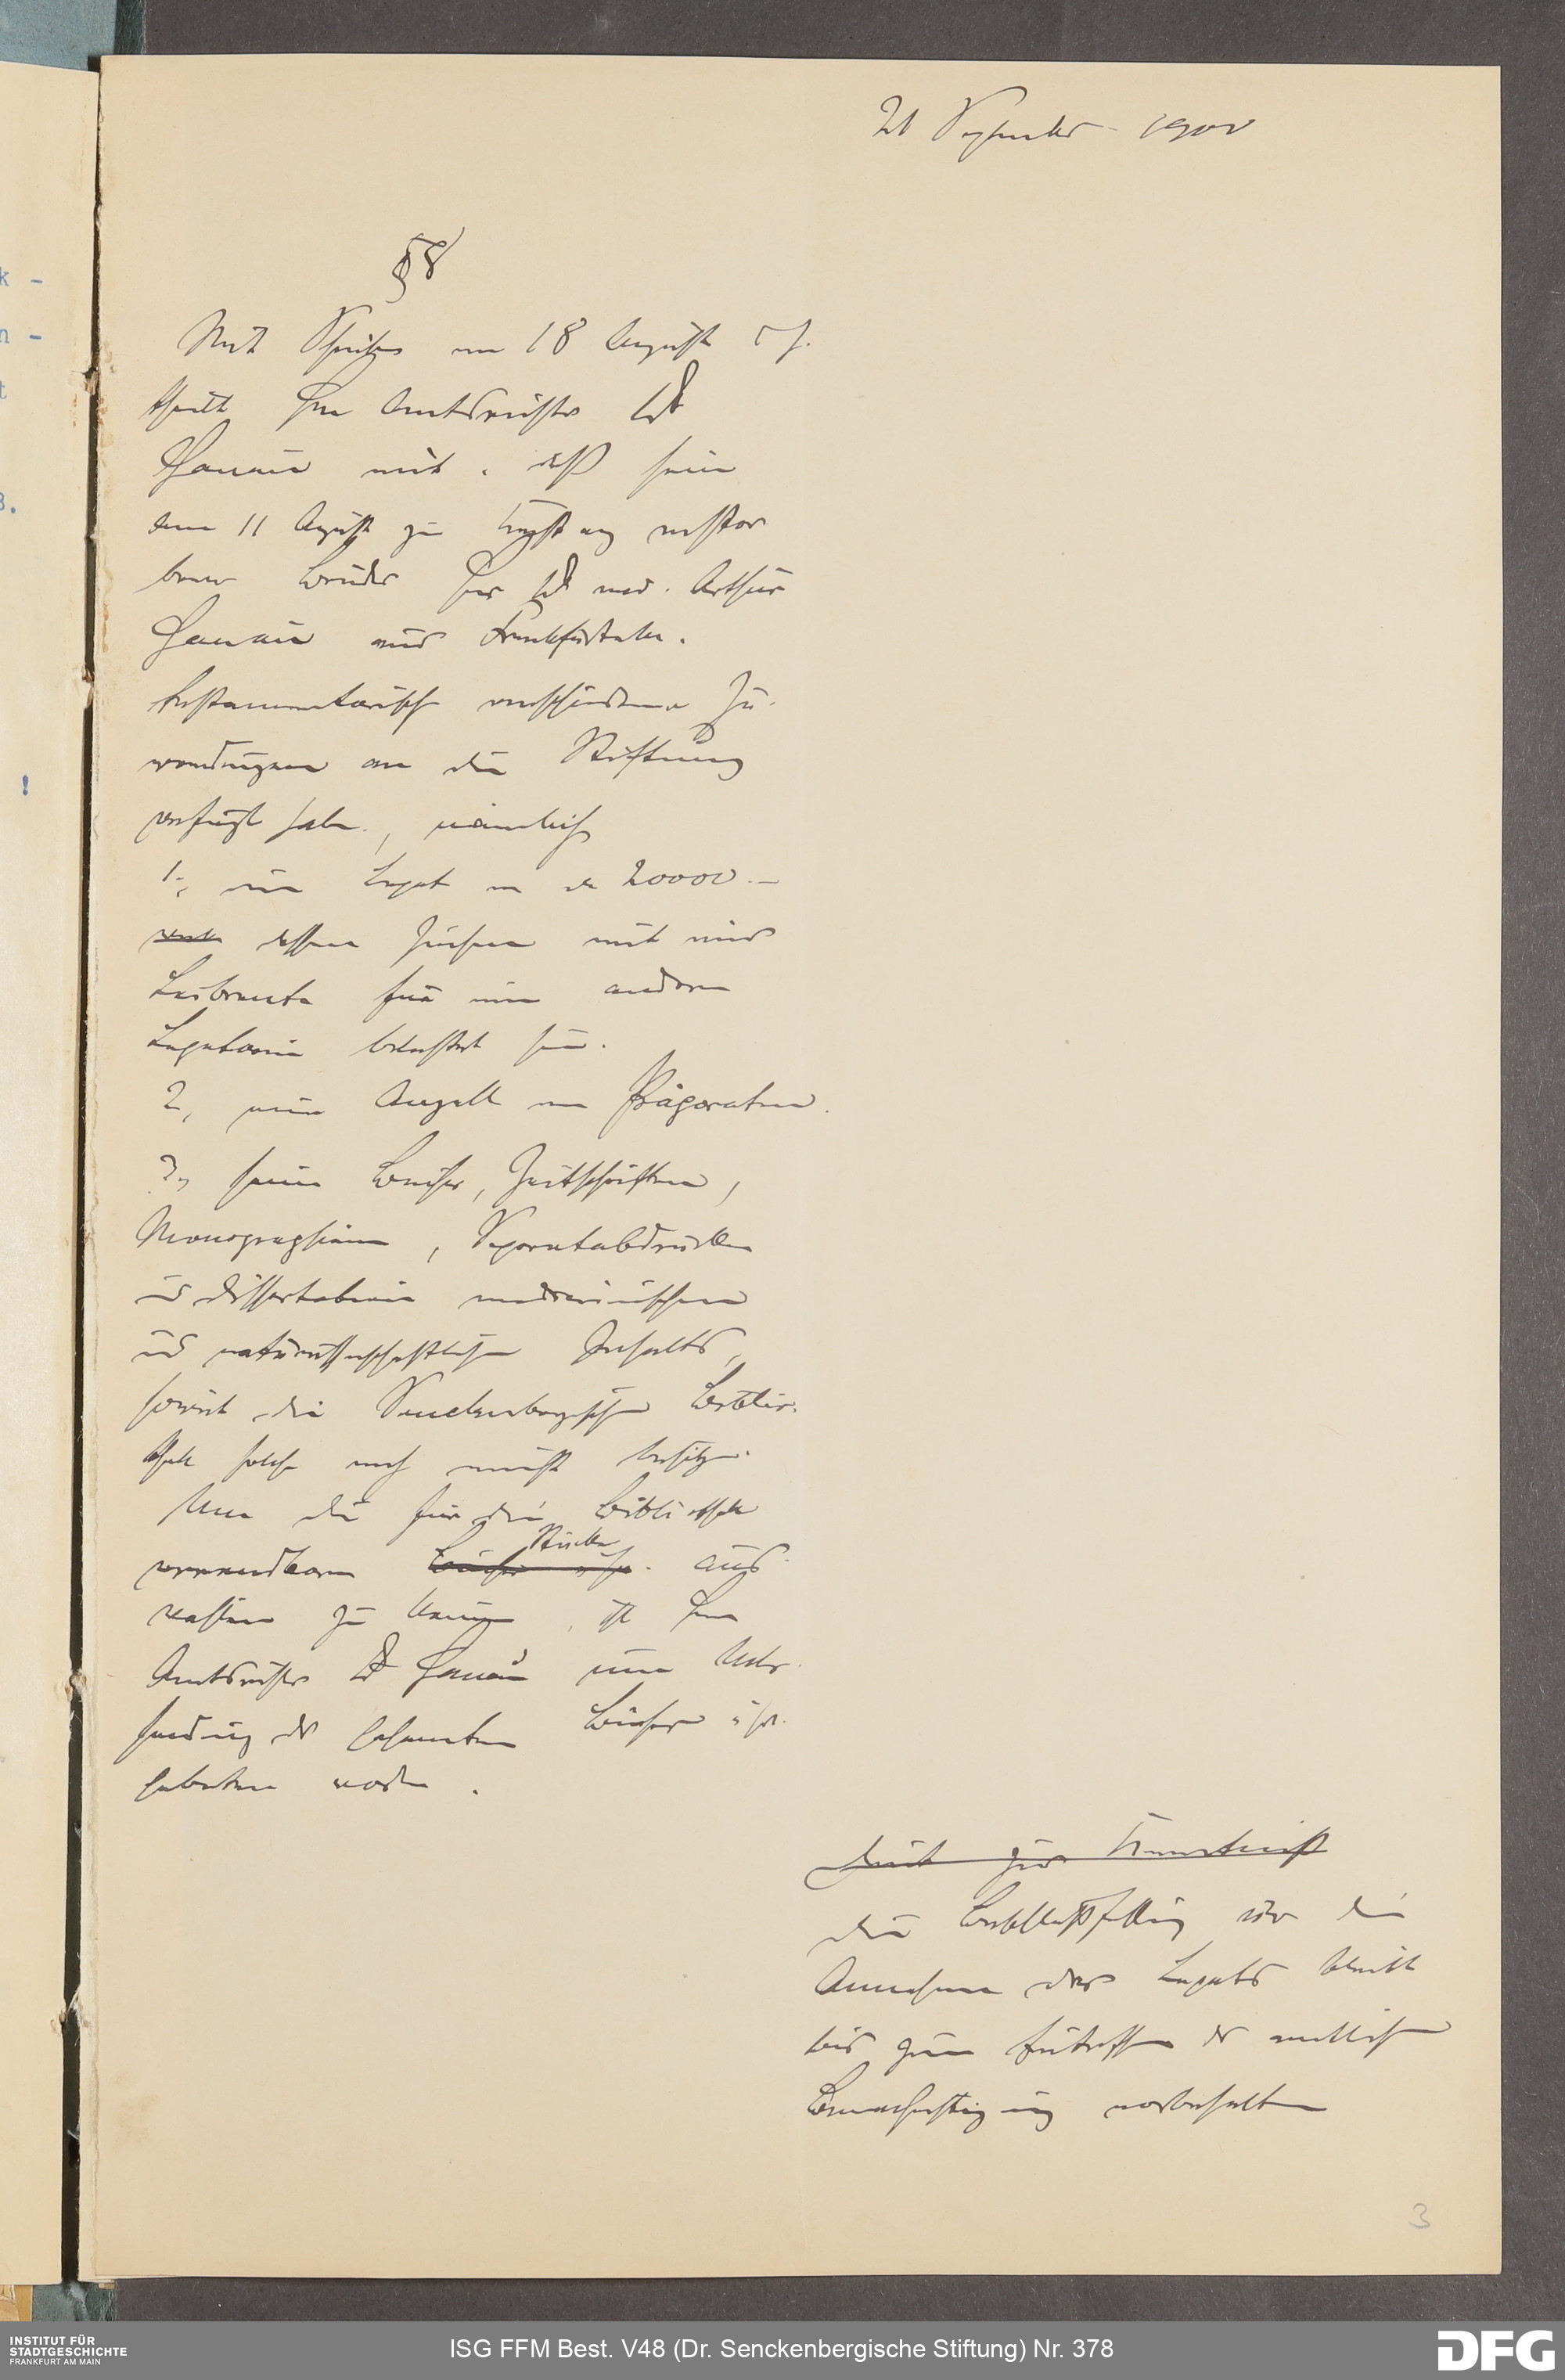 21 September 1900
§ 8
Mit Schreiben vom 18 August d J.
theilt Herr Amtsrichter Dr
Hanau mit, daß sein
am 11 August zu verstor
bener Bruder Herr Dr med. Arthur
Hanau aus Frankfurt a/M.
testamentarisch verschiedene Zu-
wendungen an die Stiftung
verfügt habe, nämlich
1, ein Legat von M 20000.—
dessen Zinsen mit einer
Leibrente für eine andere
Legatarin belastet sei.
2, eine Anzahl von Präparaten.
3, seine Bücher, Zeitschriften,
Monographien, Separatabdrücke
u Dissertationen medizinischen
u naturwissenschaftlichen Inhalts,
soweit die Senckenbergische Biblio-
thek solche noch nicht besitze.
Um die für die Bibliothek
Stücke
verwendbaren Bücher usw. aus-
wählen zu können, ist Herr
Amtsrichter Dr Hanau um Über-
sendung der gesamten Bücher usw.
gebeten worden.
Dient zur Kenntniß
Die Beschlußfassung über die
Annahme des Legats bleibt
bis zum Eintreffen der amtlichen
Benachrichtigung vorbehalten
3
k -
n -
t
3.
!
INSTITUT FÜR
STADTGESCHICHTE
FRANKFURT AM MAIN
ISG FFM Best. V48 (Dr. Senckenbergische Stiftung) Nr. 378
DFG